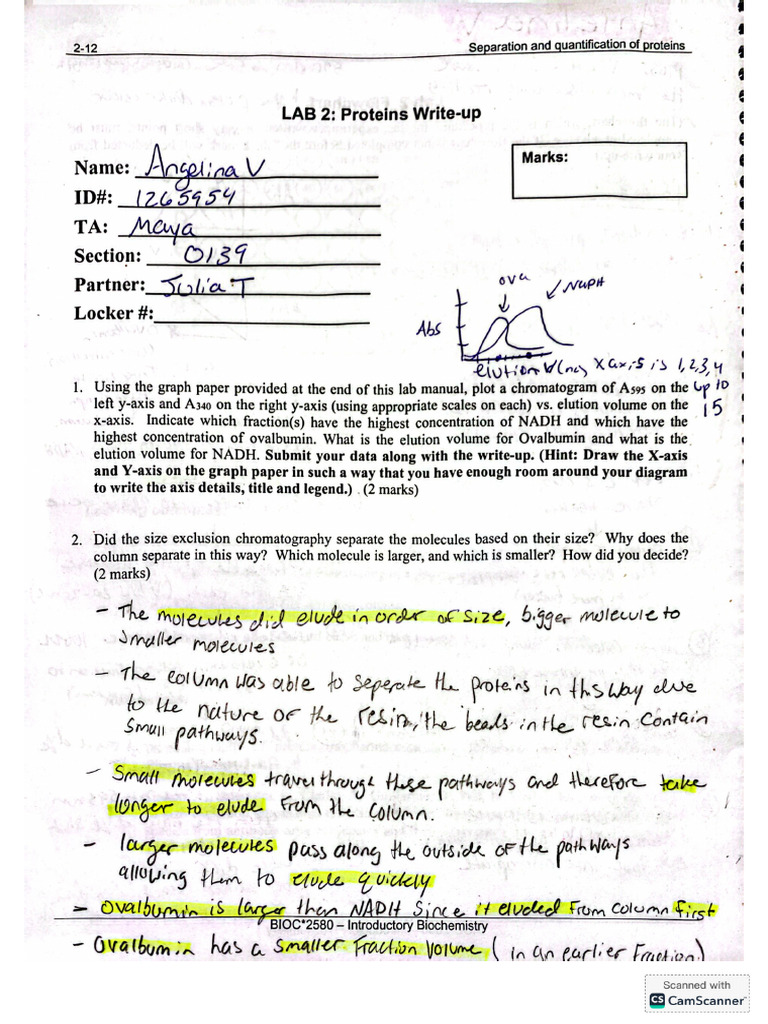 2-12 Separation and quantification of proteins
LAB 2: Proteins Write-up
Name: Angelina V
Marks:
ID#: 1265954
TA: Maya
Section: 0139
Partner: Julia T
Locker #:
ova
NADH
Abs
elution V (mL) X axis is 1,2,3,4
up 10
15
1. Using the graph paper provided at the end of this lab manual, plot a chromatogram of A595 on the
left y-axis and A340 on the right y-axis (using appropriate scales on each) vs. elution volume on the
x-axis. Indicate which fraction(s) have the highest concentration of NADH and which have the
highest concentration of ovalbumin. What is the elution volume for Ovalbumin and what is the
elution volume for NADH. Submit your data along with the write-up. (Hint: Draw the X-axis
and Y-axis on the graph paper in such a way that you have enough room around your diagram
to write the axis details, title and legend.) . (2 marks)
2. Did the size exclusion chromatography separate the molecules based on their size? Why does the
column separate in this way? Which molecule is larger, and which is smaller? How did you decide?
(2 marks)
- The molecules did elude in order of size, bigger molecule to
smaller molecules
- The column was able to seperate the proteins in this way due
to the nature of the resin, the beads in the resin contain
small pathways.
- Small molecules travel through these pathways and therefore take
longer to elude from the column.
- larger molecules pass along the outside of the pathways
allowing them to elude quickly
- Ovalbumin is larger than NADH since it eluded from column first
BIOC*2580 – Introductory Biochemistry
- Ovalbumin has a smaller fraction volume (in an earlier fraction)
Scanned with
CS CamScanner